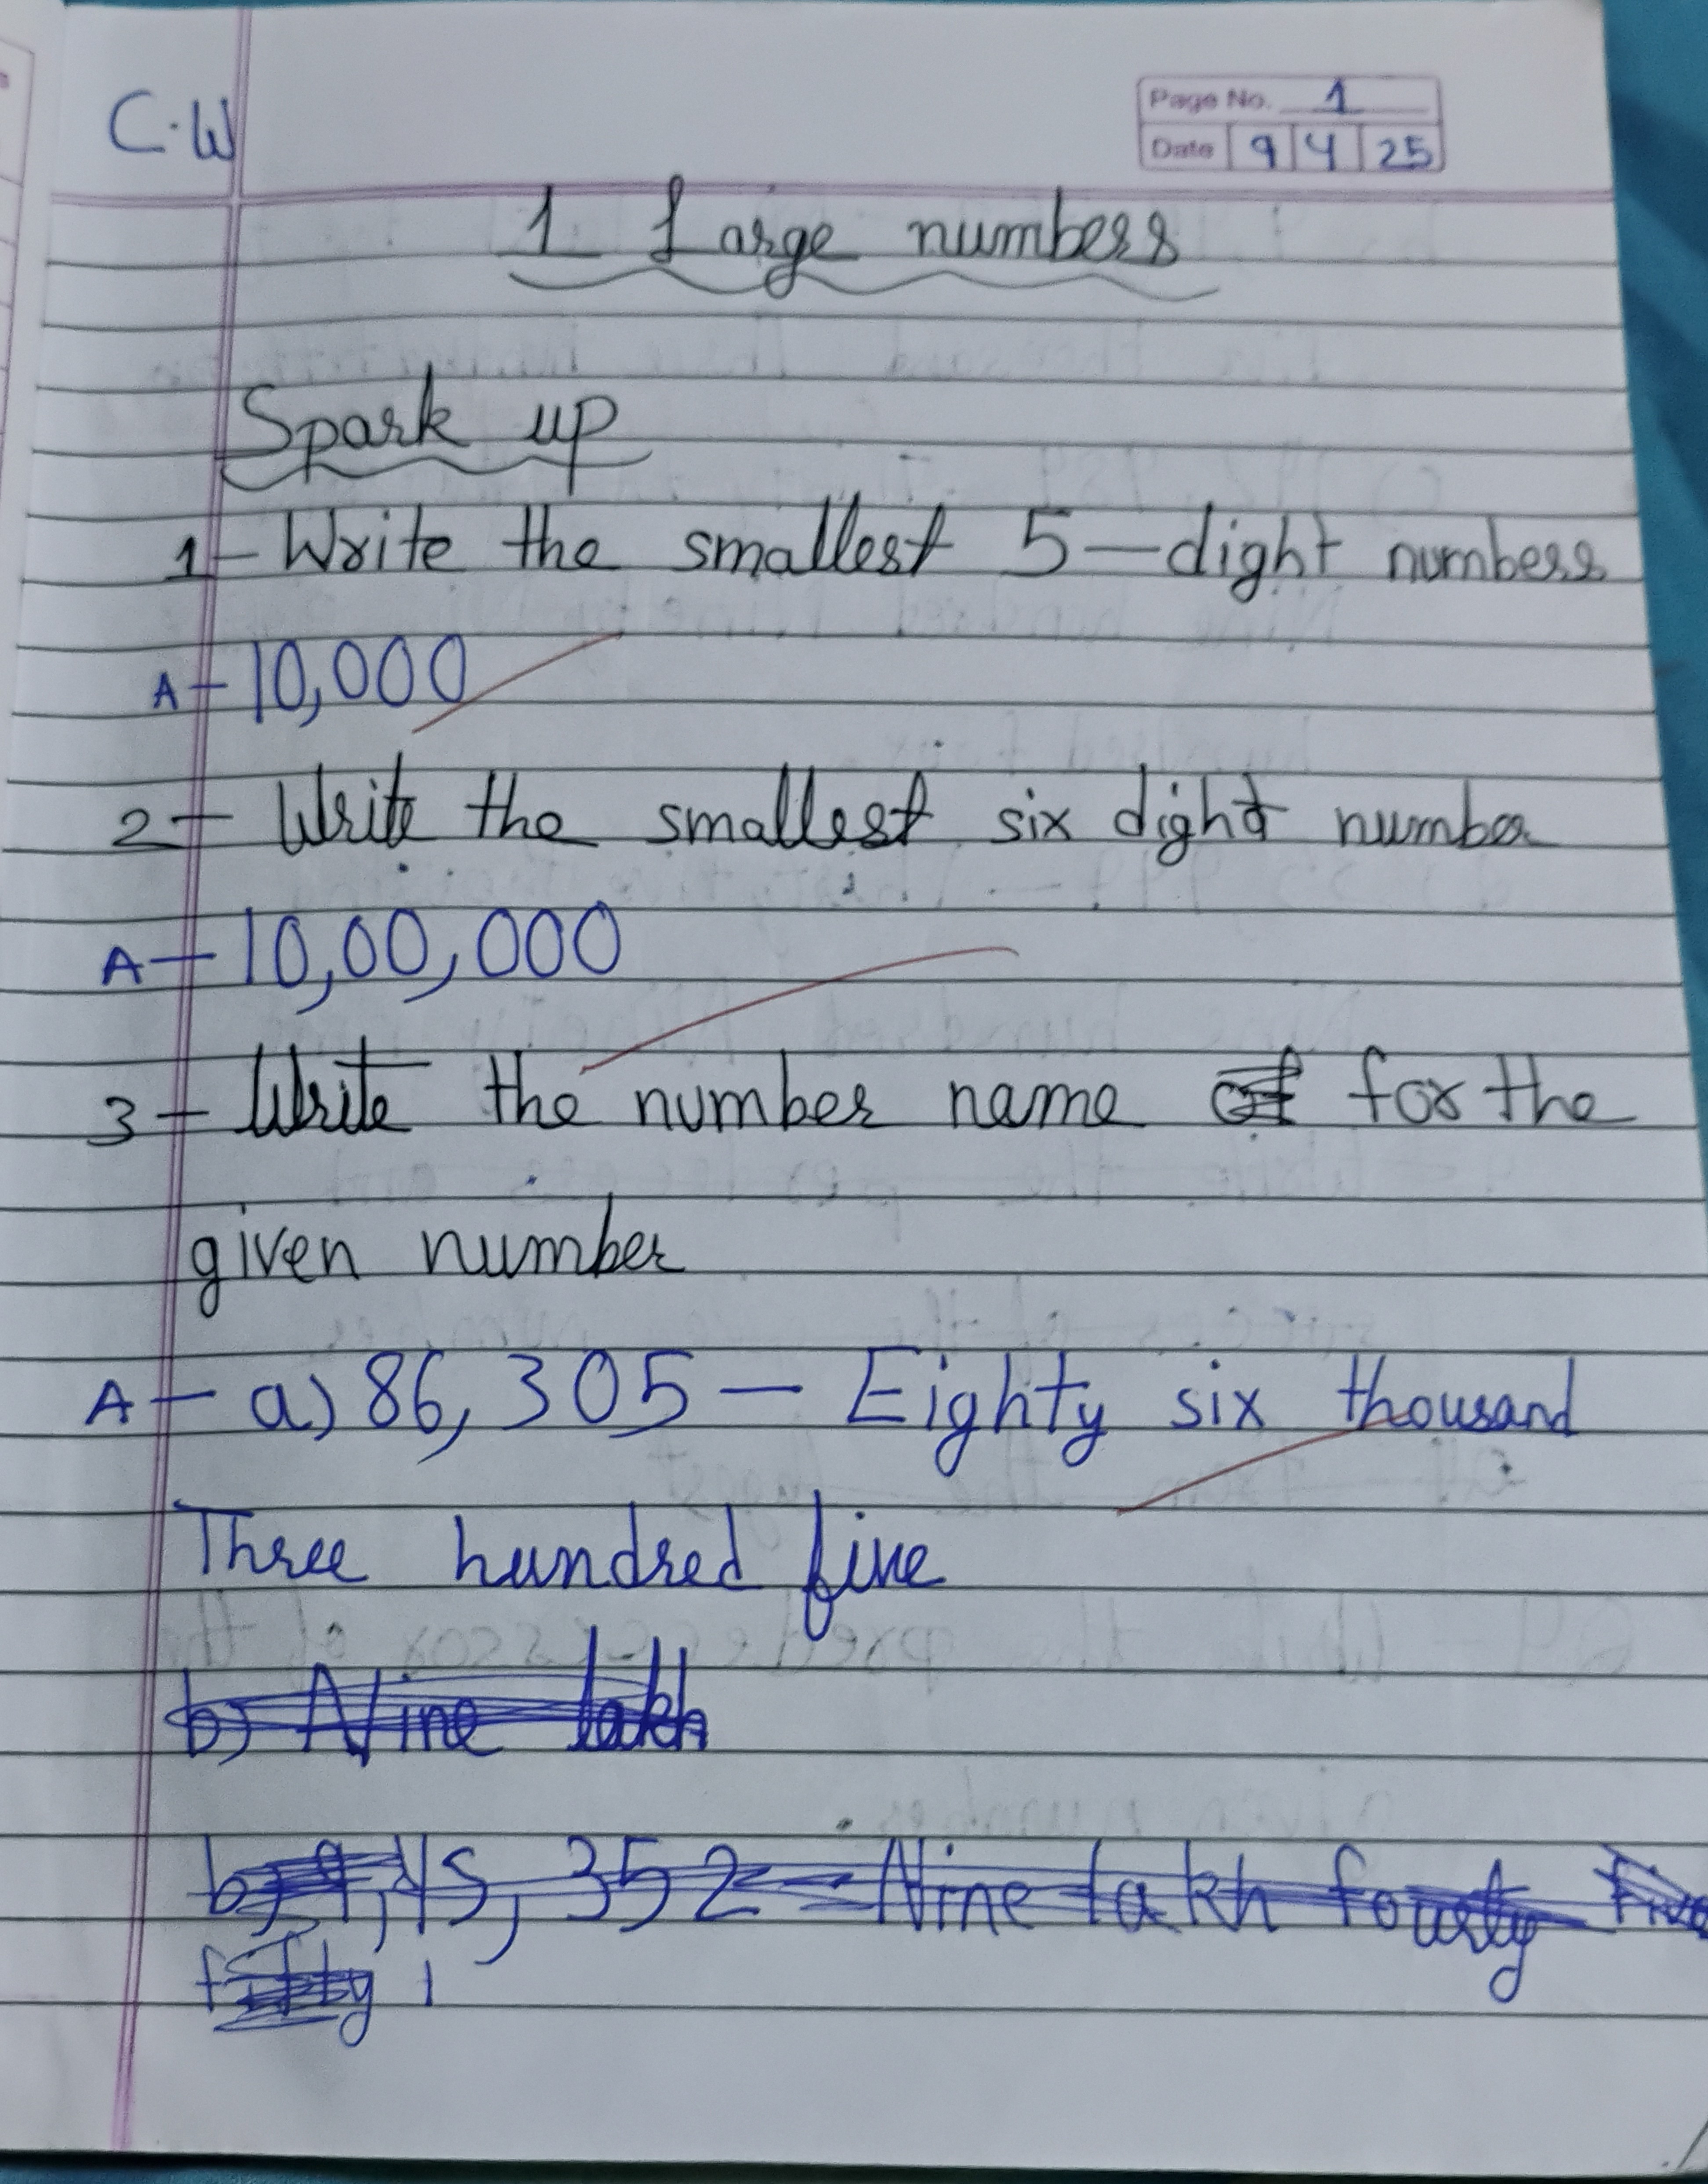 C.W
Page No. 1
Date 9 4 25
1 Large numbers
Spark up
1- Write the smallest 5-dight numbers
A- 10,000
2- Write the smallest six dight number
A- 10,00,000
3- Write the number name of for the
given number
A- a) 86,305 - Eighty six thousand
Three hundred five
b) Nine lakh
b) 9,45,352 - Nine lakh fourty five
fifty